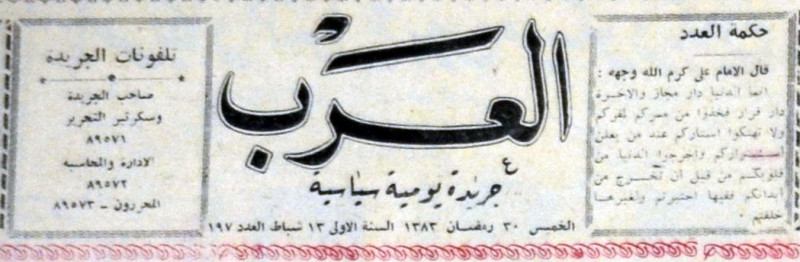 حكمة العدد
قال الامام علي كرم الله وجهه :
انما الدنيا دار مجاز والاخرة
دار قرار فخذوا من ممركم لمقركم
ولا تهتكوا استاركم عند من يعلن
واخرجوا الدنيا من
قلوبكم من قبل أن تخرج من
أبدانكم ففيها اختبرتم ولغيرها
خلقتم .
العرب
جريدة يومية سياسية
الخميس ٣٠ رمضان ١٣٨٣ السنة الاولى ١٣ شباط العدد ١٩٧
تلفونات الجريدة
صاحب الجريدة
وسكرتير التحرير
٨٩٥٧١
الادارة والمحاسبه
٨٩٥٧٢
المحررون - ٨٩٥٧٣